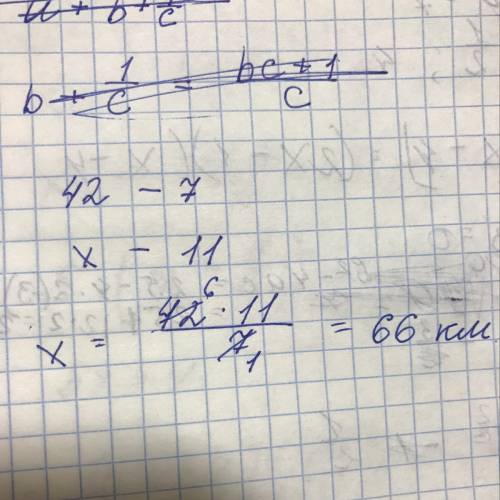 a + b + 1/c
b + 1/c = bc + 1/c
42 - 7
x - 11
x = 42 6 · 11 / 7 1 = 66 км